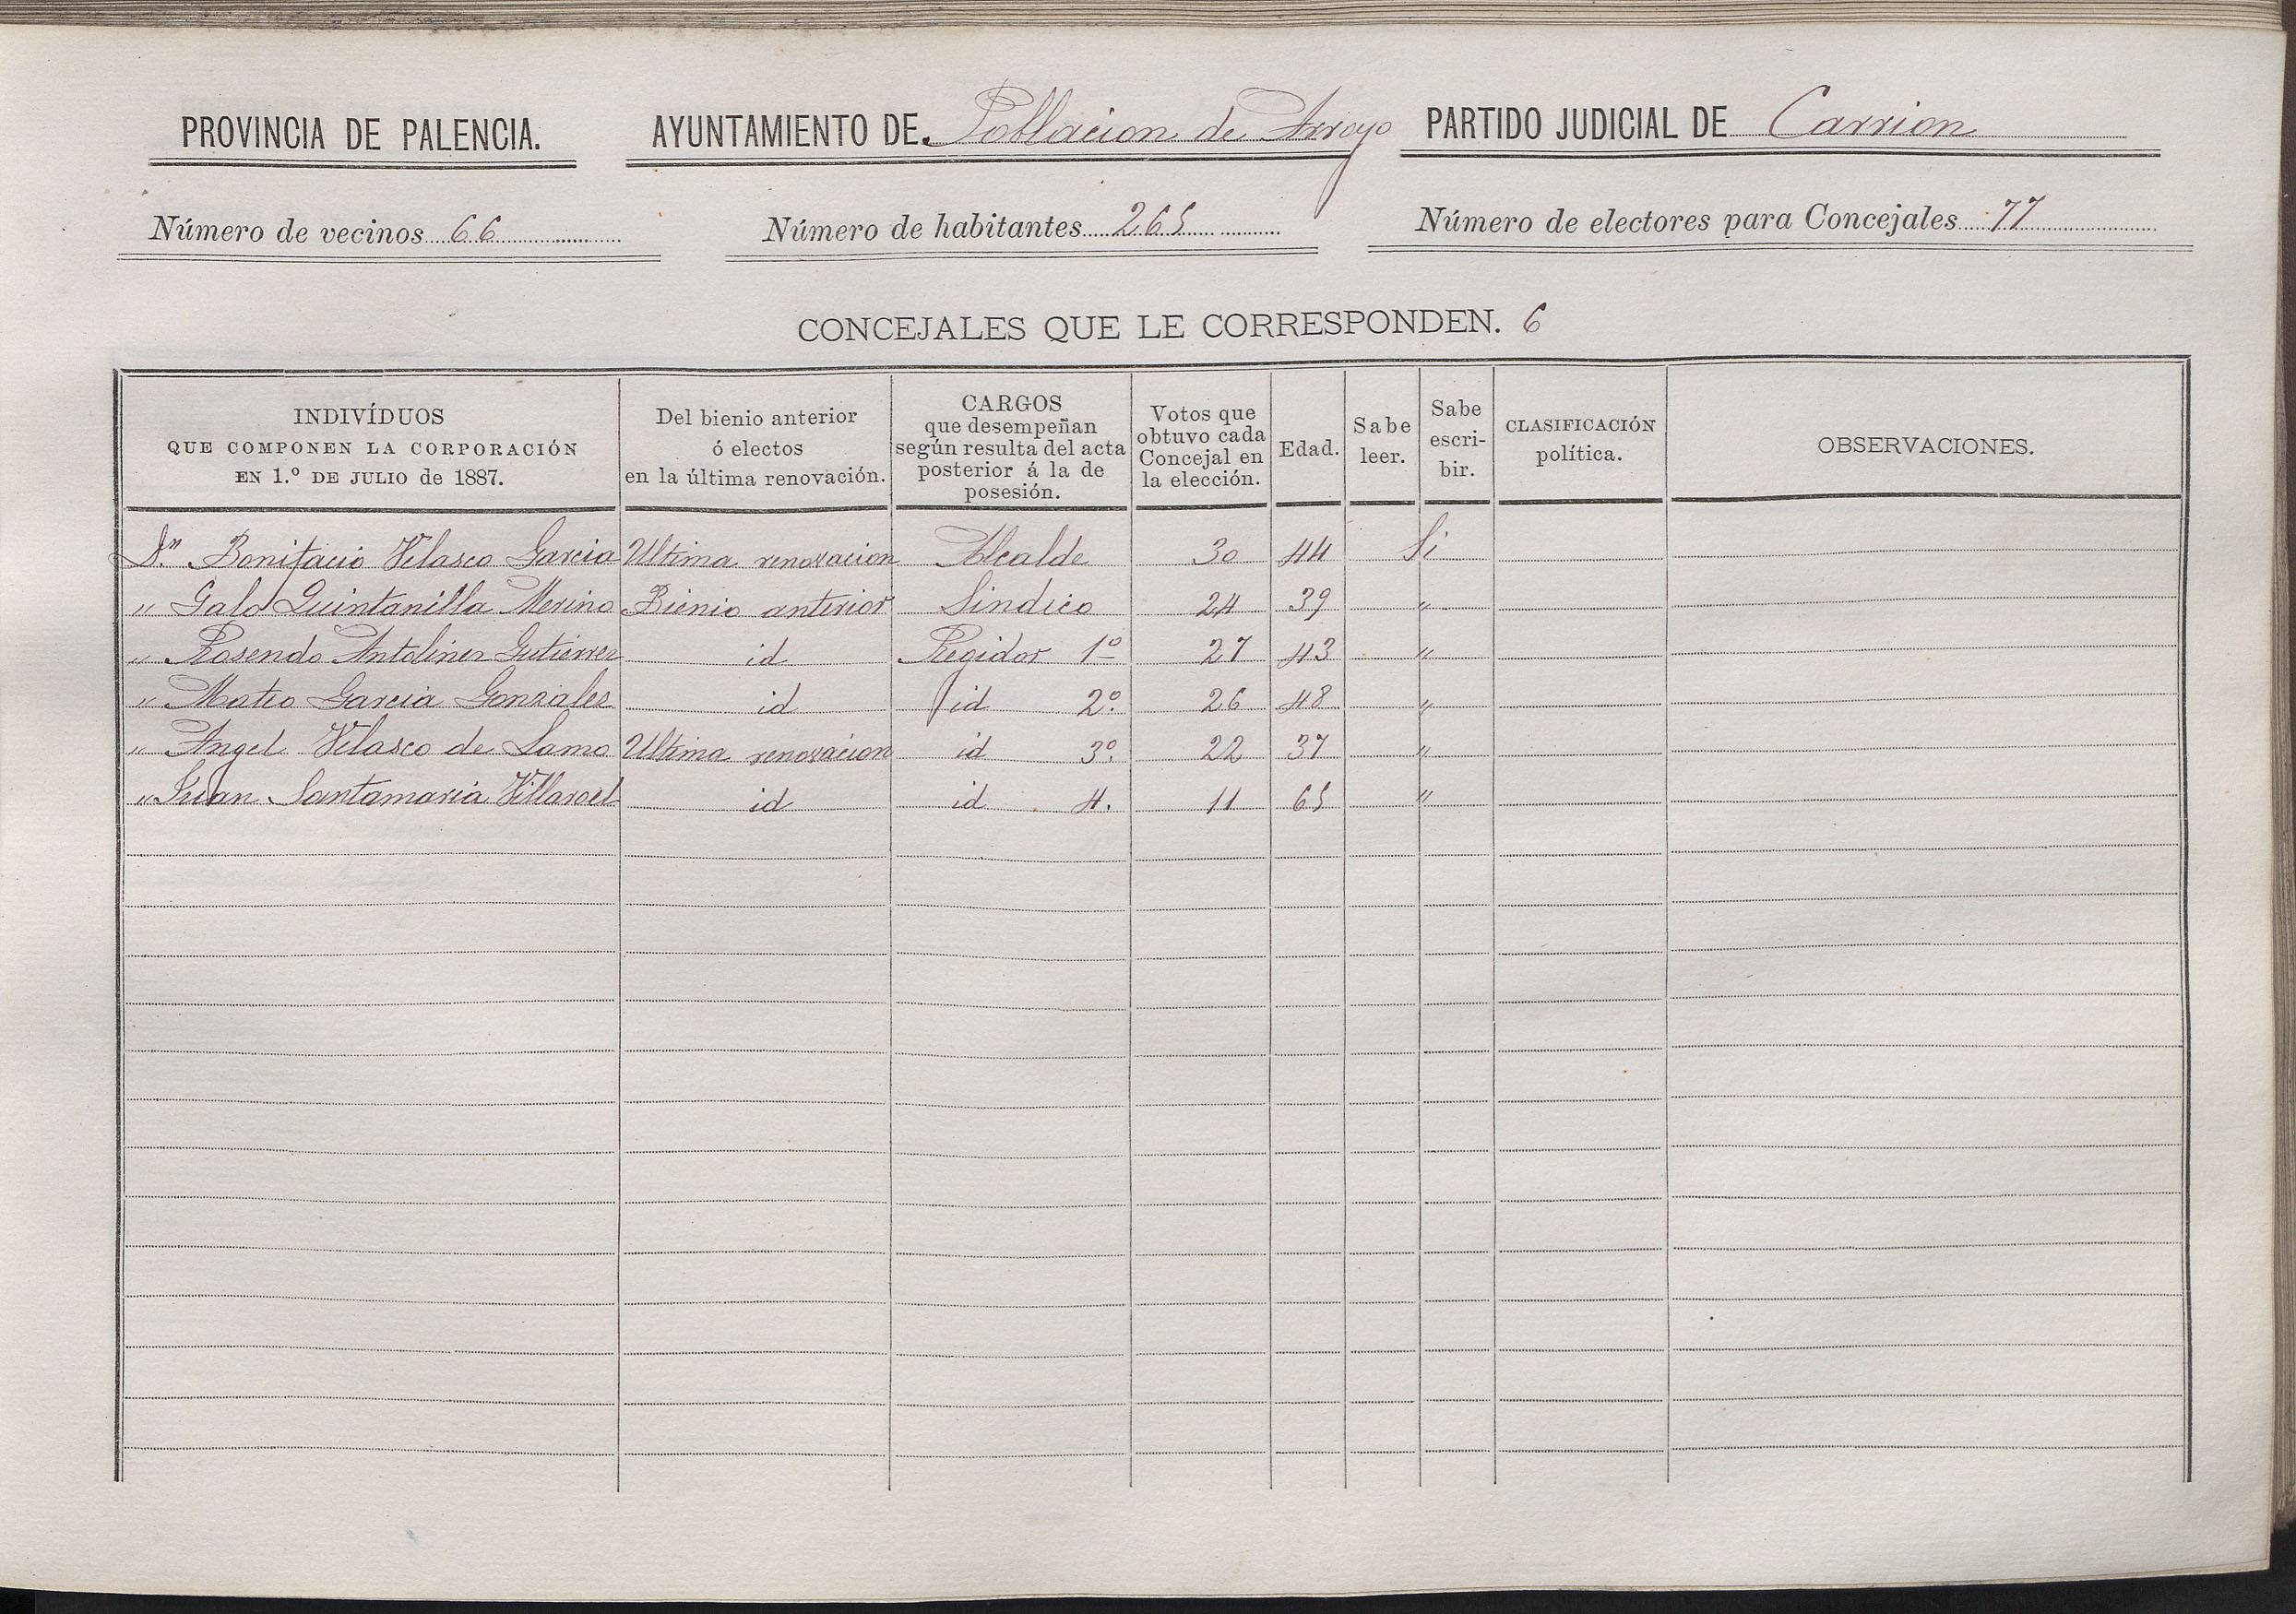 PROVINCIA DE PALENCIA. AYUNTAMIENTO DE Poblacion de Arroyo PARTIDO JUDICIAL DE Carrion
Número de vecinos 66 Número de habitantes 265 Número de electores para Concejales 77
CONCEJALES QUE LE CORRESPONDEN. 6
INDIVÍDUOS
QUE COMPONEN LA CORPORACIÓN
EN 1.º DE JULIO de 1887.
Del bienio anterior
ó electos
en la última renovación.
CARGOS
que desempeñan
según resulta del acta
posterior á la de
posesión.
Votos que
obtuvo cada
Concejal en
la elección.
Edad.
Sabe
leer.
Sabe
escri-
bir.
CLASIFICACIÓN
política.
OBSERVACIONES.
Dn. Bonifacio Velasco Garcia Ultima renovacion Alcalde 30 44 Si
" Galo Quintanilla Merino Bienio anterior Sindico 24 39 "
" Rosendo Antolinez Gutierrez id Regidor 1º 27 43 "
" Mateo Garcia Gonzalez id id 2º. 26 48 "
" Angel Velasco de Lama Ultima renovacion id 3º. 22 37 "
" Juan Santamaria Villaroel id id 4. 11 65 "